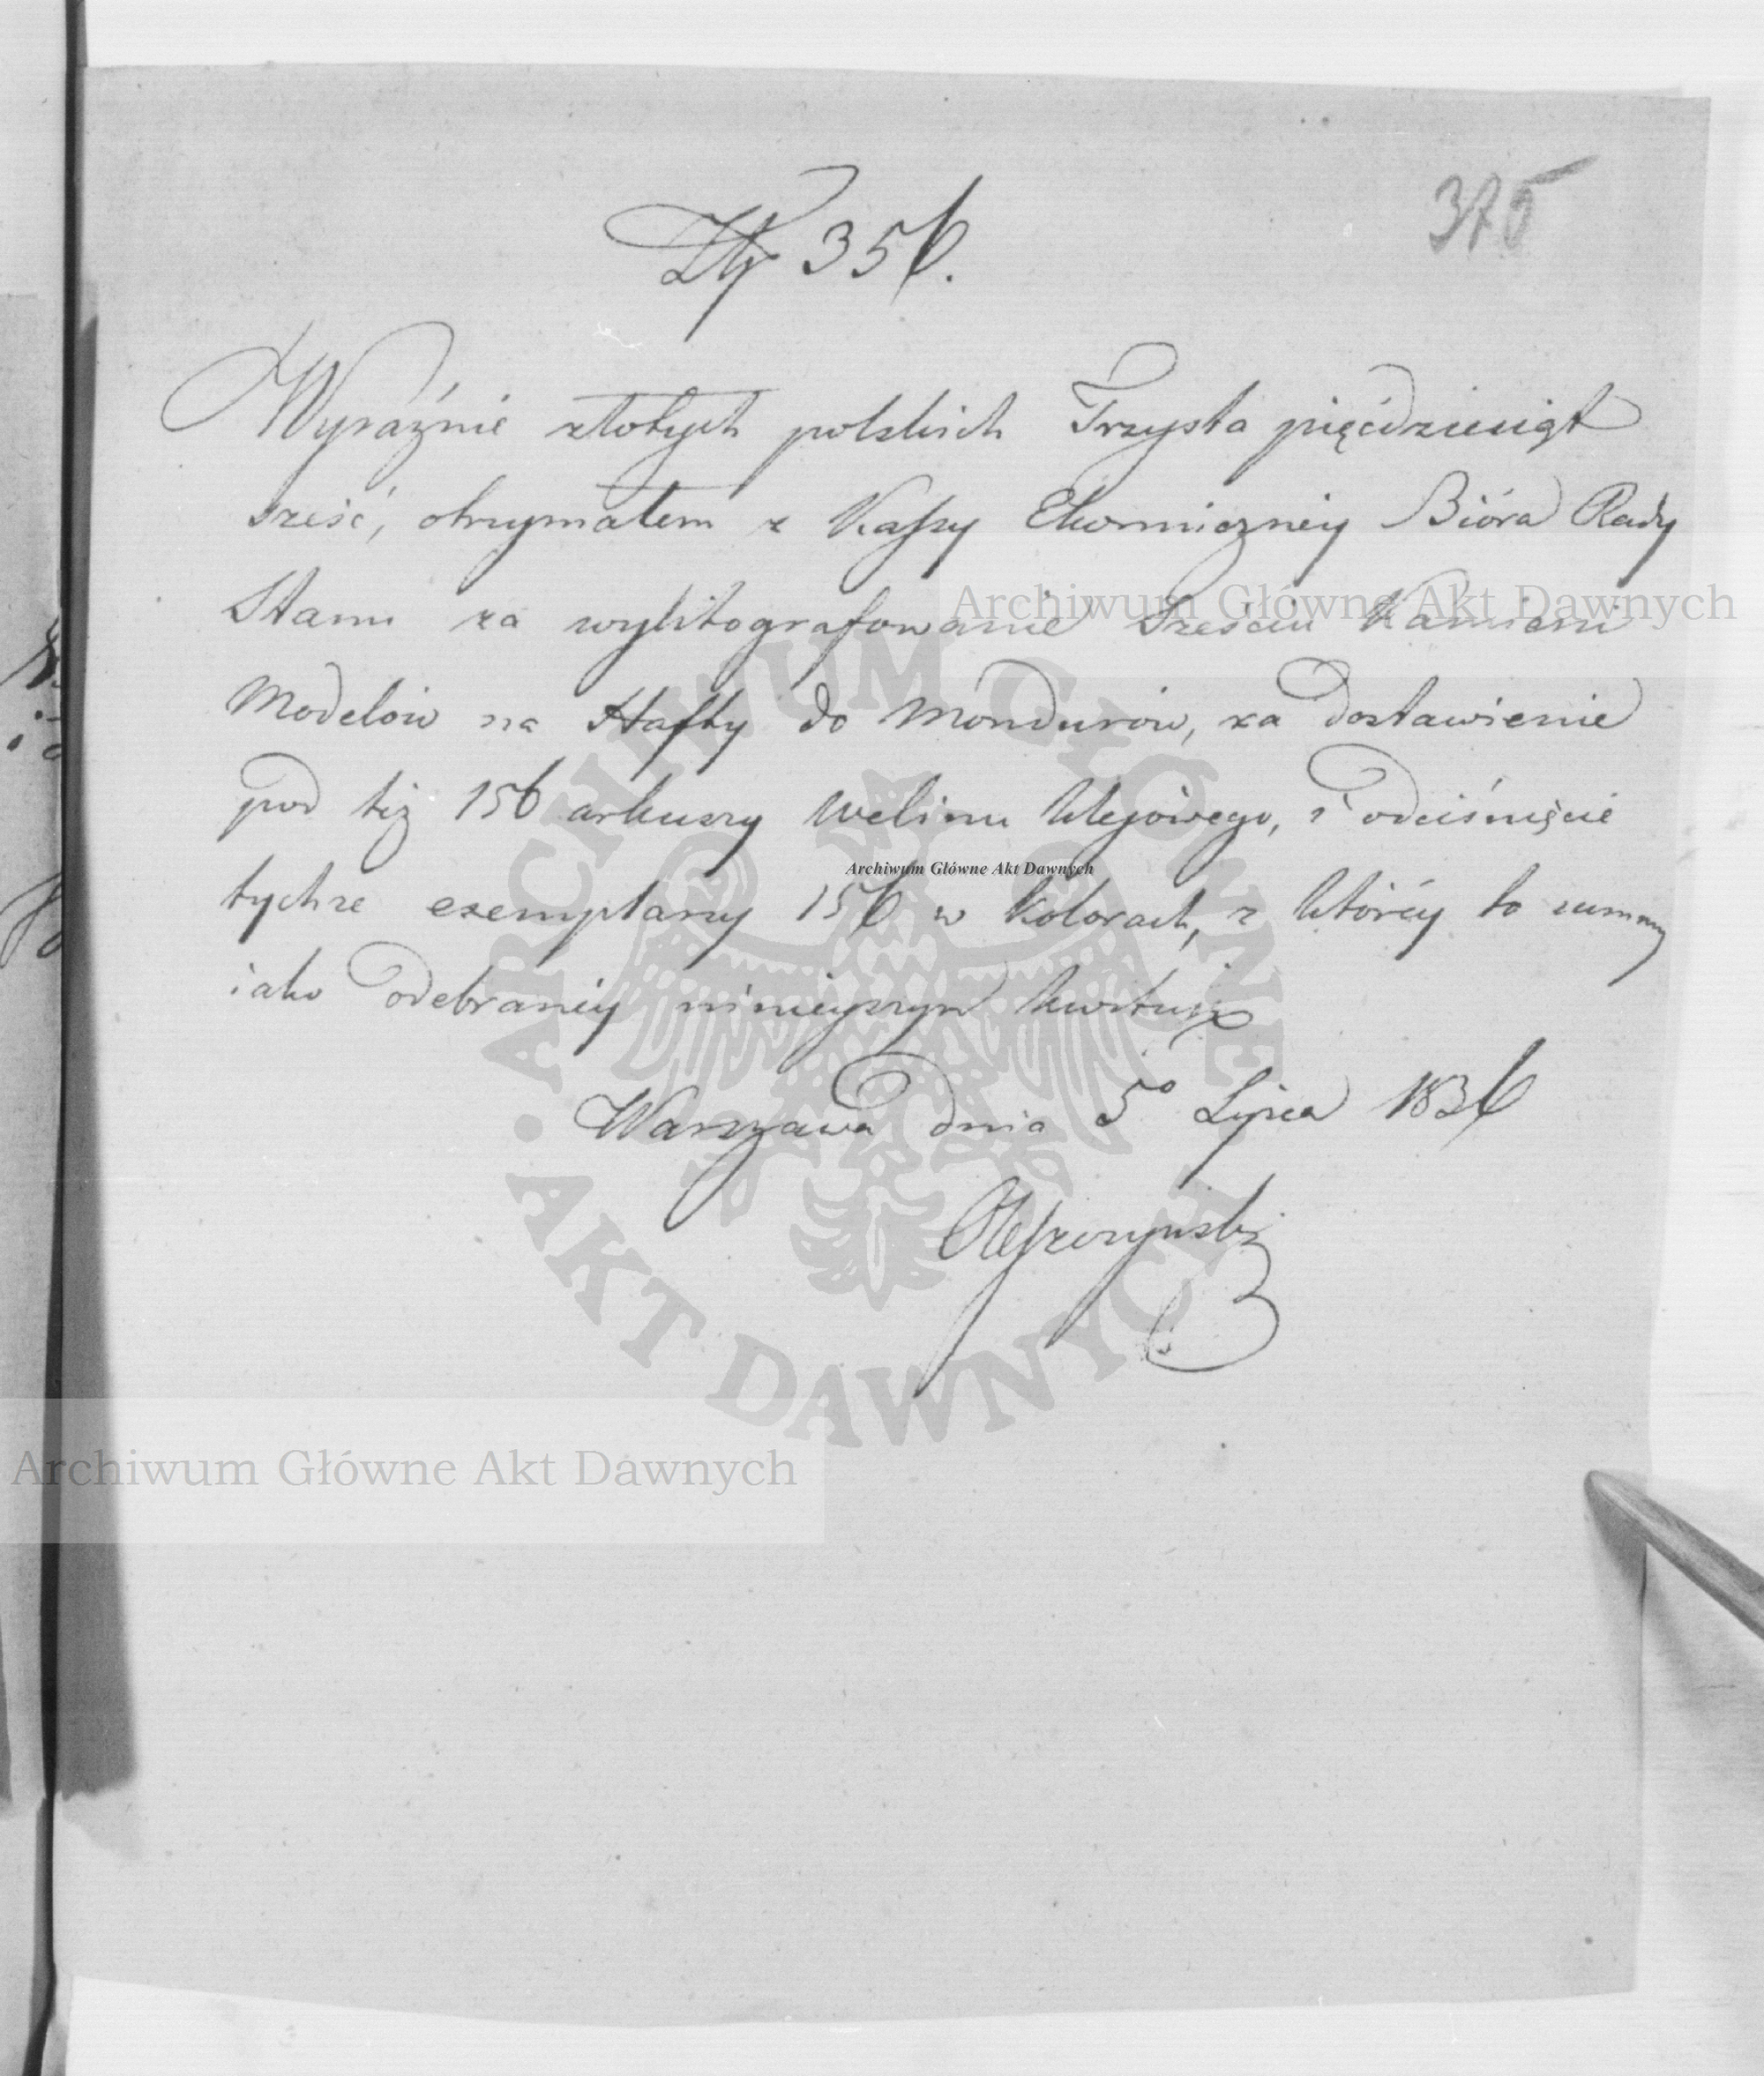 375
Złp 356.
Wyraźnie złotych polskich Trzysta pięćdziesiąt
sześć, otrzymałem z Kassy Ekonomiczney Bióra Rady
Stanu za wylitografowanie Sześciu Kamieni
Modelów na Hafty do Mondurów, za dostawienie
pod też 156 arkuszy Welinu klejowego, i odciśnięcie
tychże exemplarzy 156 w kolorach, z któréy to summy
iako odebranéy ninieyszym kwituię
Warszawa dnia 5º Lipca 1836
Oleszczyński
Archiwum Główne Akt Dawnych
Archiwum Główne Akt Dawnych
Archiwum Główne Akt Dawnych
ARCHIWUM GŁÓWNE AKT DAWNYCH